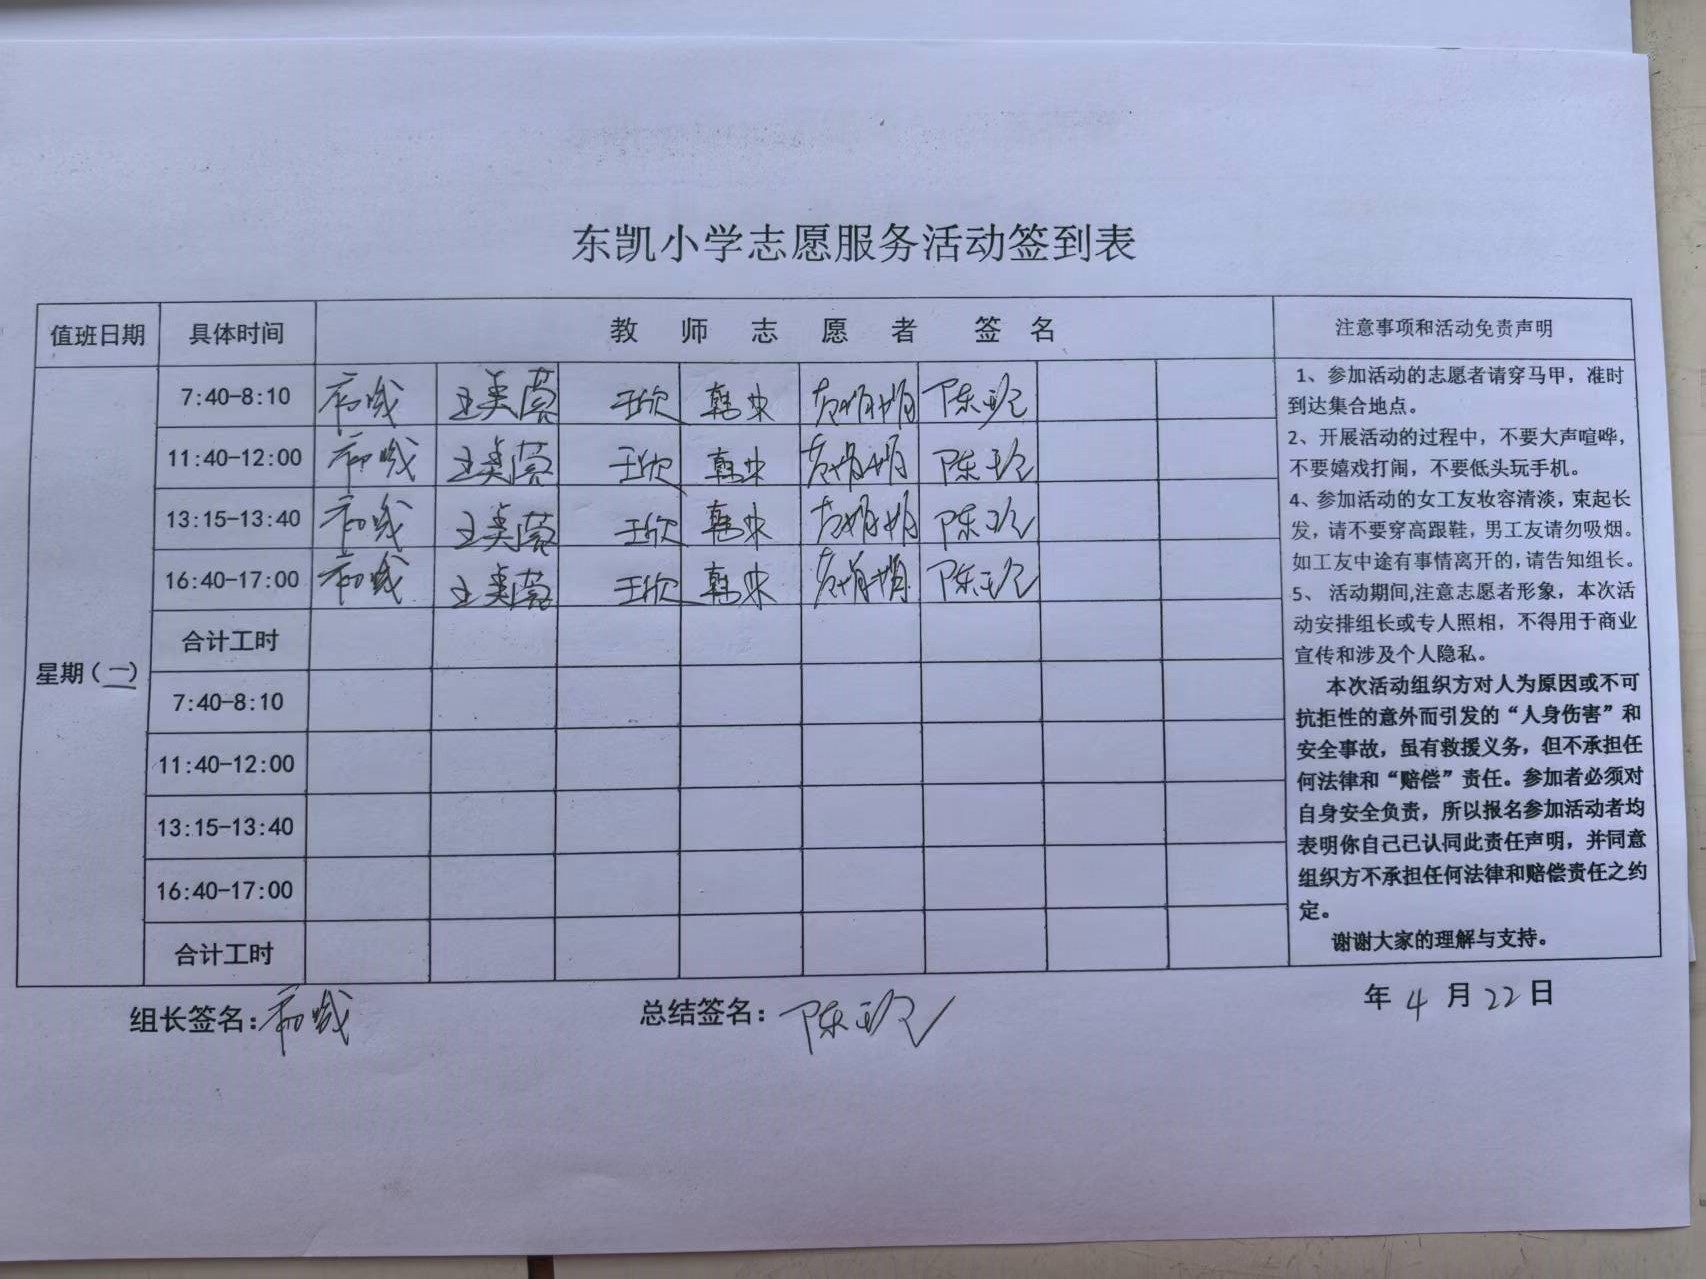 东凯小学志愿服务活动签到表
值班日期 具体时间 教师志愿者 签名 注意事项和活动免责声明
星期（一）
7:40-8:10 王欣 韩 陈玲
11:40-12:00 王欣 韩 陈玲
13:15-13:40 王欣 韩 陈玲
16:40-17:00 王欣 韩 陈玲
合计工时
7:40-8:10
11:40-12:00
13:15-13:40
16:40-17:00
合计工时
1、参加活动的志愿者请穿马甲，准时
到达集合地点。
2、开展活动的过程中，不要大声喧哗，
不要嬉戏打闹，不要低头玩手机。
4、参加活动的女工友妆容清淡，束起长
发，请不要穿高跟鞋，男工友请勿吸烟。
如工友中途有事情离开的,请告知组长。
5、 活动期间,注意志愿者形象，本次活
动安排组长或专人照相，不得用于商业
宣传和涉及个人隐私。
本次活动组织方对人为原因或不可
抗拒性的意外而引发的“人身伤害”和
安全事故，虽有救援义务，但不承担任
何法律和“赔偿”责任。参加者必须对
自身安全负责，所以报名参加活动者均
表明你自己已认同此责任声明，并同意
组织方不承担任何法律和赔偿责任之约
定。
谢谢大家的理解与支持。
组长签名： 总结签名：陈玲 年 4 月 22 日